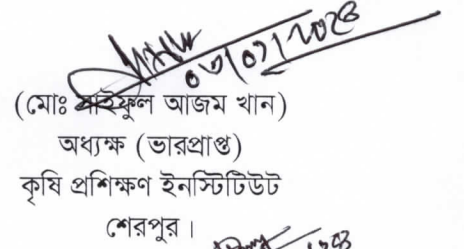 ০৩/০৭/২০২৪
(মোঃ সাইফুল আজম খান)
অধ্যক্ষ (ভারপ্রাপ্ত)
কৃষি প্রশিক্ষণ ইনস্টিটিউট
শেরপুর।